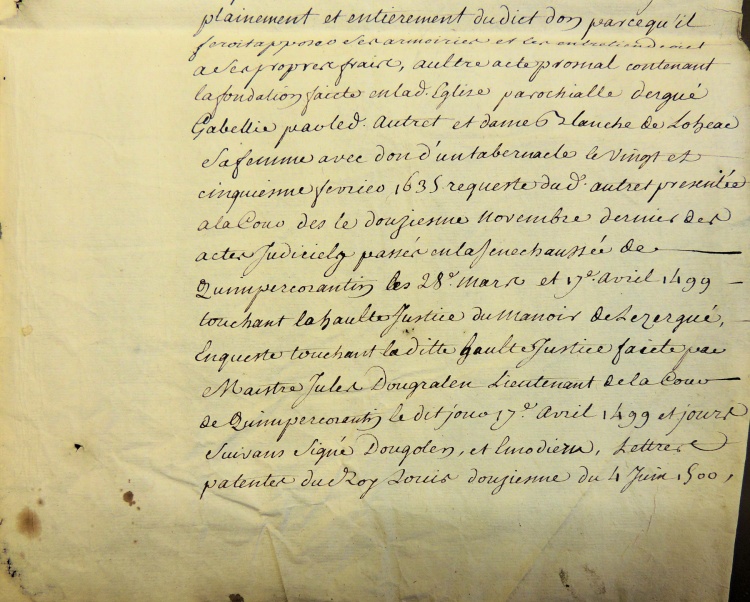 plainement et entierement du dict don parce qu'il
feroit apposer ses armoiries et les entretiendroit
a ses propres fraix, aultre acte promal contenant
la fondation faicte en lad. Eglise parochialle dergué
Gabellic par led. Autret et dame Blanche de Loheac
sa femme avec don d'un tabernacle le vingt et
cinquiesme fevrier 1635 requeste dud. autret presentée
a la Cour des le douziesme Novembre dernier des
actes Judiciels passés en la senechaussée de
Quimpercorantin les 28e. mars et 17e. Avril 1499
touchant la haulte Justice du Manoir de Lezergué,
Enqueste touchant la ditte haulte Justice faicte par
Maistre Jules Dougralen Lieutenant de la Cour
de Quimpercorantin le dit jour 17e. Avril 1499 et jours
suivans Signé Dougolen, et Emodiern, Lettres
patentes du Roy Louis douziesme du 4 Juin 1500,